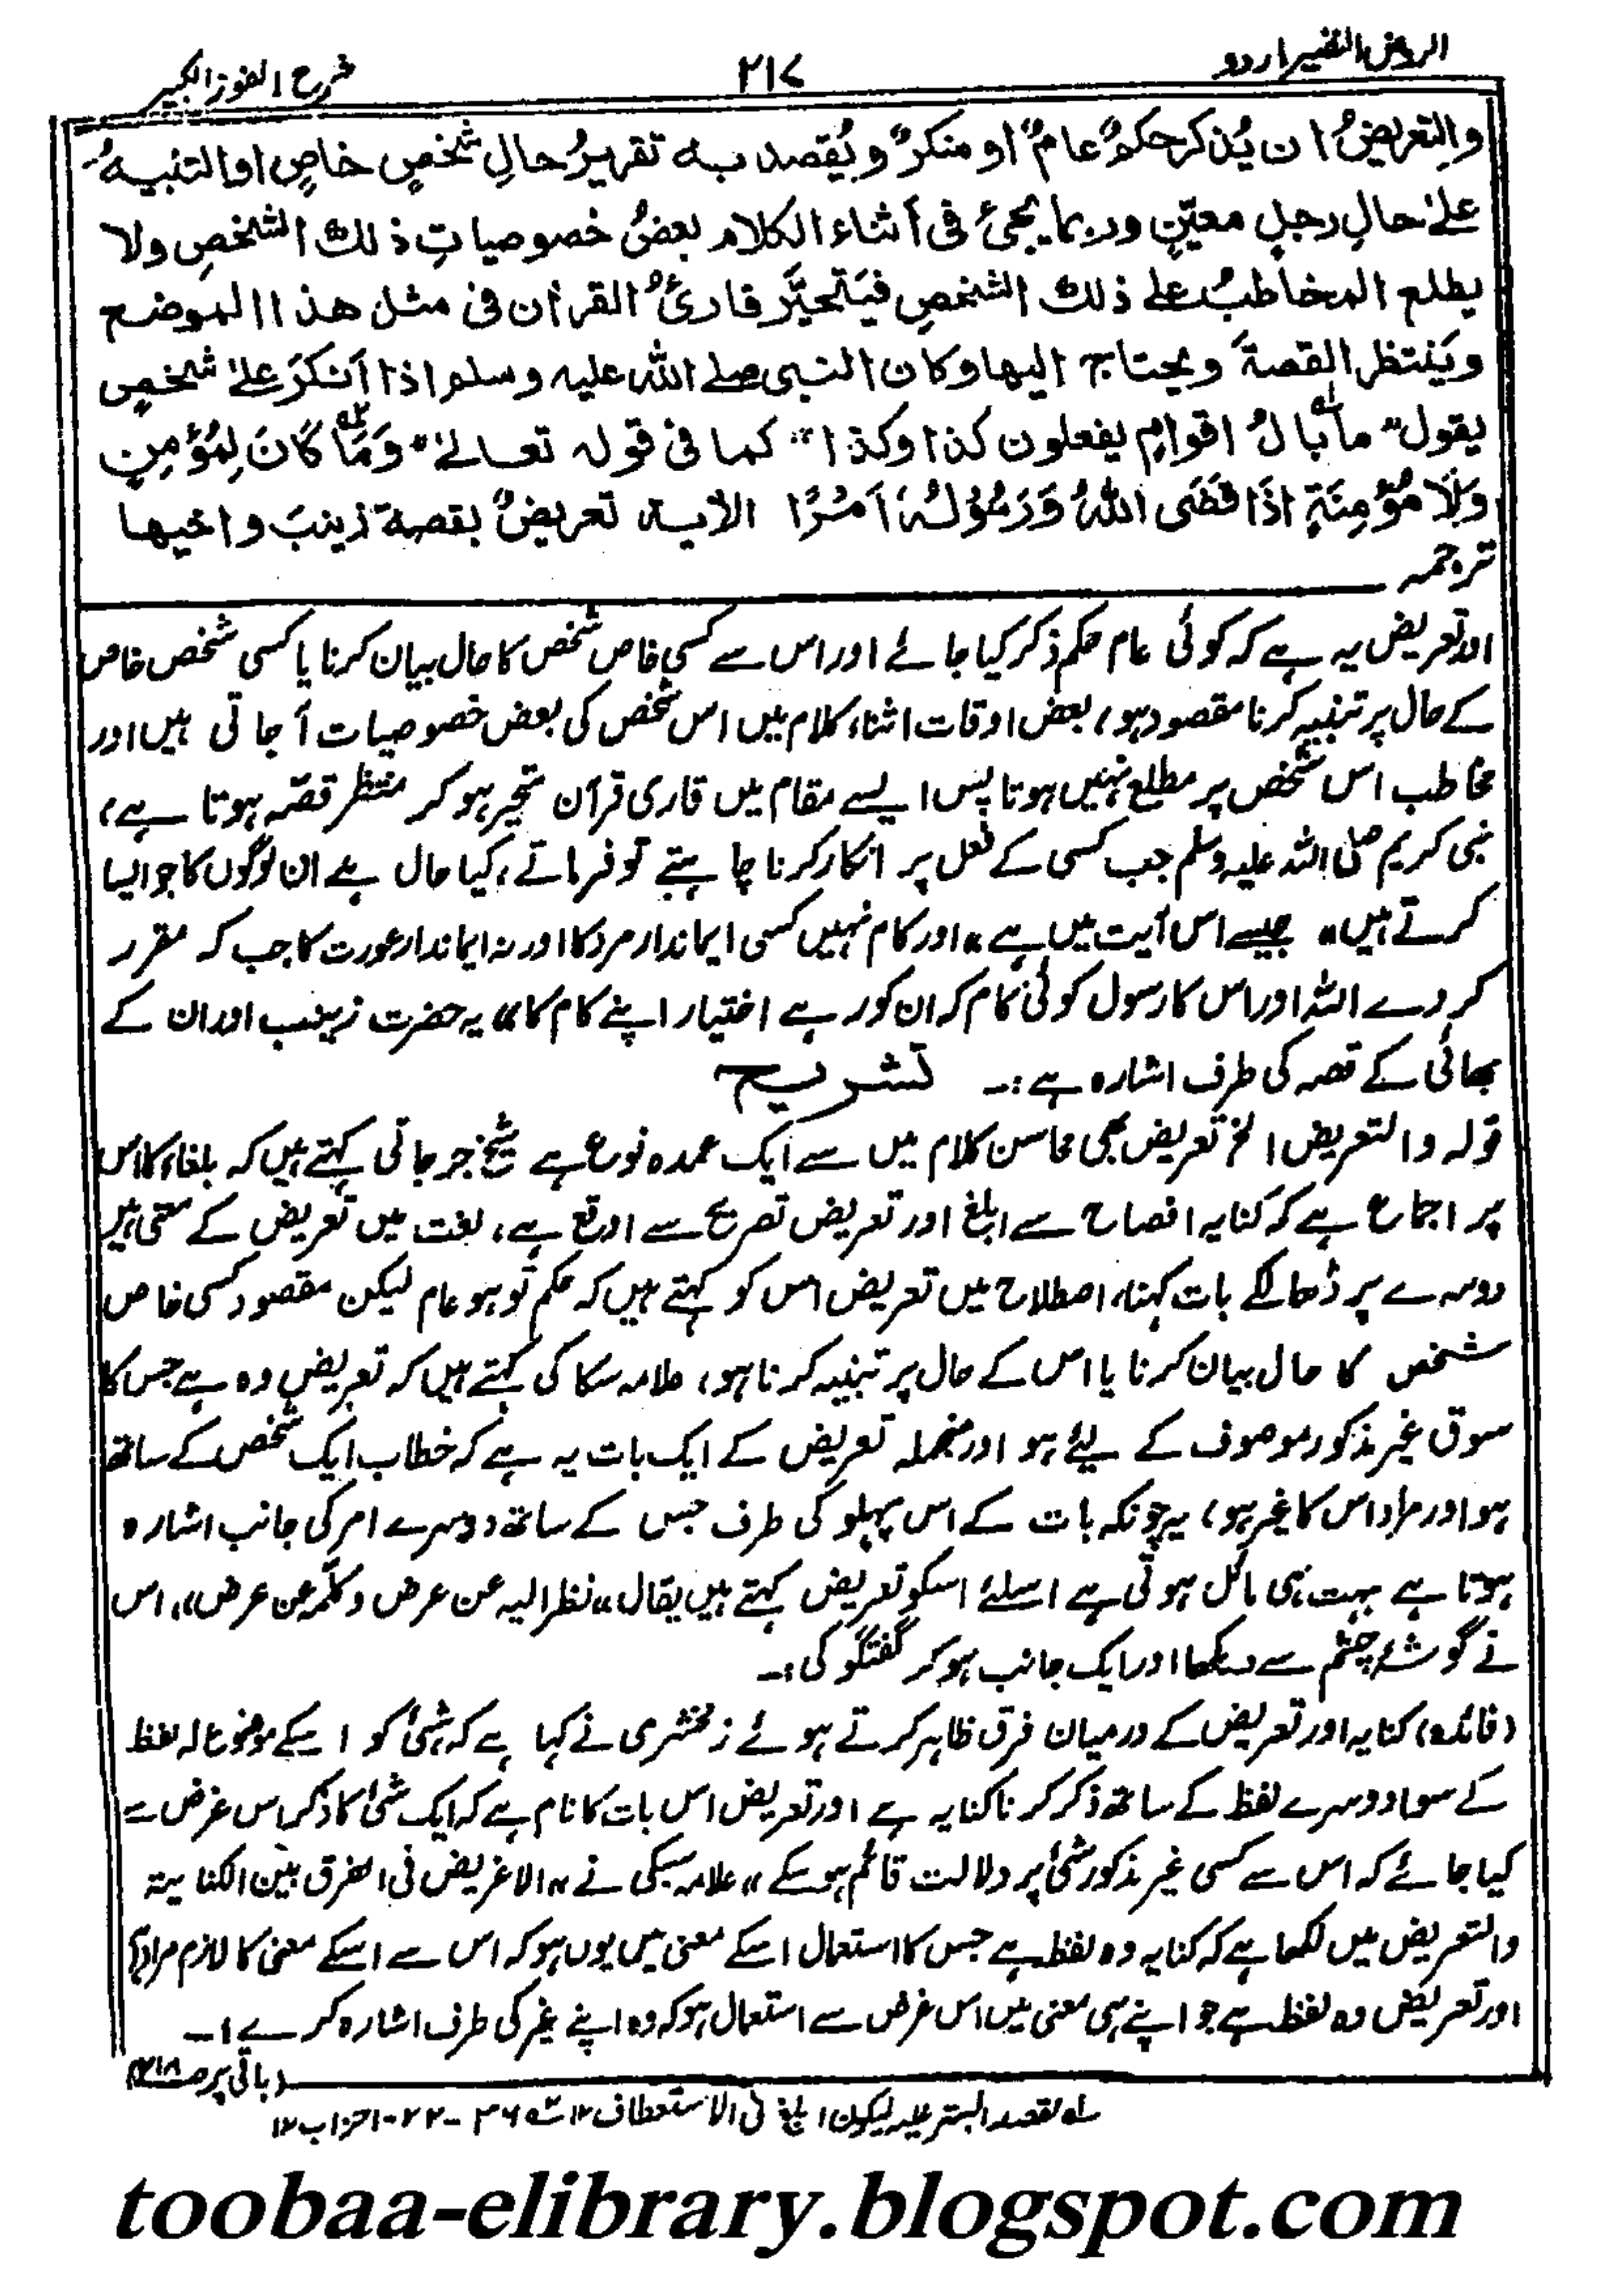 الروض النضیر اردو ۲۱۷ شرح الفوز الکبیر
والتعریضُ ان یُذکر حکمٌ عامٌ او منکرٌ و یُقصد بہ تقریرُ حالِ شخصٍ خاصٍ او التنبیہُ
علیٰ حالِ رجلٍ معیّنٍ وربما یجیٔ فی أثناء الکلام بعضُ خصوصیاتِ ذلك الشخصِ ولا
یطلع المخاطبُ علی ذلك الشخصِ فیَتحیَّر قاریٔ القراٰن فی مثل ھذا الموضع
ویَنتظر القصةَ ویحتاج الیھا وکان النبی صلی اللہ علیہ وسلم اذا اَنکرَ علیٰ شخصٍ
یقول "ما بالُ اقوامٍ یفعلون کذا وکذا" کما فی قولہ تعالیٰ "وَمَا کَانَ لِمُؤْمِنٍ
وَلَا مُؤْمِنَةٍ اِذَا قَضَی اللہُ وَرَسُوْلُہٗ اَمْرًا الآیہ، تعریضٌ بقصة زینبَ واخیھا
ترجمہ
اور تعریض یہ ہے کہ کوئی عام حکم ذکر کیا جائے اور اس سے کسی خاص شخص کا حال بیان کرنا یا کسی شخص خاص
کے حال پر تنبیہ کرنا مقصود ہو، بعض اوقات اثناء کلام میں اس شخص کی بعض خصوصیات آجاتی ہیں اور
مخاطب اس شخص پر مطلع نہیں ہوتا پس ایسے مقام میں قاری قرآن متحیر ہو کر منتظر قصّہ ہوتا ہے،
نبی کریم صلی اللہ علیہ وسلم جب کسی کے فعل پر انکار کرنا چاہتے تو فرماتے، کیا حال ہے ان لوگوں کا جو ایسا
کرتے ہیں" جیسے اس آیت میں ہے "اور کام نہیں کسی ایماندار مرد کا اور نہ ایماندار عورت کا جب کہ مقرر
کر دے اللہ اور اس کا رسول کوئی کام کہ ان کو رہے اختیار اپنے کام کا" یہ حضرت زینب اور ان کے
بھائی کے قصہ کی طرف اشارہ ہے :۔ تشریح
قولہ والتعریض الخ تعریض بھی محاسن کلام میں سے ایک عمدہ نوع ہے شیخ جرجانی کہتے ہیں کہ بلغاء کا اس
پر اجماع ہے کہ کنایہ افصاح سے ابلغ اور تعریض تصریح سے اوقع ہے، لغت میں تعریض کے معنی ہیں
دوسرے پر ڈھالکے بات کہنا، اصطلاح میں تعریض اس کو کہتے ہیں کہ حکم تو ہو عام لیکن مقصود کسی خاص
شخص کا حال بیان کرنا یا اس کے حال پر تنبیہ کرنا ہو، علامہ سکاکی کہتے ہیں کہ تعریض وہ ہے جس کا
سوق غیر مذکور موصوف کے لیئے ہو اور منجملہ تعریض کے ایک بات یہ ہے کہ خطاب ایک شخص کے ساتھ
ہو اور مراد اس کا غیر ہو، یہ چونکہ بات کے اس پہلو کی طرف جس کے ساتھ دوسرے امر کی جانب اشارہ
ہوتا ہے بہت ہی مائل ہوتی ہے اسلئے اسکو تعریض کہتے ہیں یقال "نظر الیہ عن عرض وکلّمہ عن عرض"، اس
نے گوشۂ چشم سے دیکھا اور ایک جانب ہو کر گفتگو کی :۔
(فائدہ) کنایہ اور تعریض کے درمیان فرق ظاہر کرتے ہوئے زمخشری نے کہا ہے کہ شیٔ کو اسکے موضوع لہ لفظ
کے سوا دوسرے لفظ کے ساتھ ذکر کرنا کنایہ ہے اور تعریض اس بات کا نام ہے کہ ایک شیٔ کا ذکر اس غرض سے
کیا جائے کہ اس سے کسی غیر مذکور شیٔ پر دلالت قائم ہو سکے" علامہ سبکی نے "الاغریض فی الفرق بین الکنایۃ
والتعریض میں لکھا ہے کہ کنایہ وہ لفظ ہے جس کا استعمال اسکے معنی میں یوں ہو کہ اس سے اسکے معنی کا لازم مراد ہو
اور تعریض وہ لفظ ہے جو اپنے ہی معنی میں اس غرض سے استعمال ہو کہ وہ اپنے غیر کی طرف اشارہ کرے :۔
(باقی بر ص ۲۱۸)
لہ لقصد الستر علیہ لیکون ابلغ فی الاستعطاف ۱۲ ٢ه ۳۶ -۲۲- احزاب ۱۲
toobaa-elibrary.blogspot.com